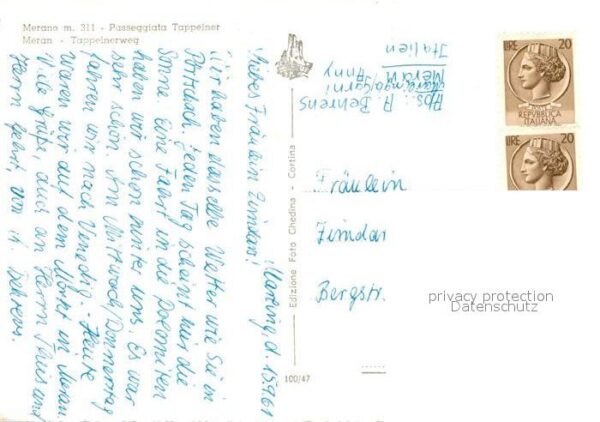 Merano m. 311 - Passeggiata Tappeiner
Meran - Tappeinerweg
Marling, d. 15.9.61
Liebes Fräulein Zimdar!
Wir haben dasselbe Wetter wie Sie in
Pörtschach. Jeden Tag scheint nur die
Sonne. Eine Fahrt in die Dolomiten
haben wir schon hinter uns. Es war
sehr schön. Am Mittwoch/Donnerstag
fahren wir nach Venedig. - Heute
waren wir auf dem Markt in Meran.
Viele Grüße, auch an Herrn
Herrn von A. Behrens.
Edizione Foto Ghedina - Cortina
100/47
Abs.: A. Behrens
Marlingo/
Meran
Italien
LIRE 20
REPVBBLICA
ITALIANA
LIRE 20
Fräulein
Zimdar
Bergstr.
privacy protection
Datenschutz